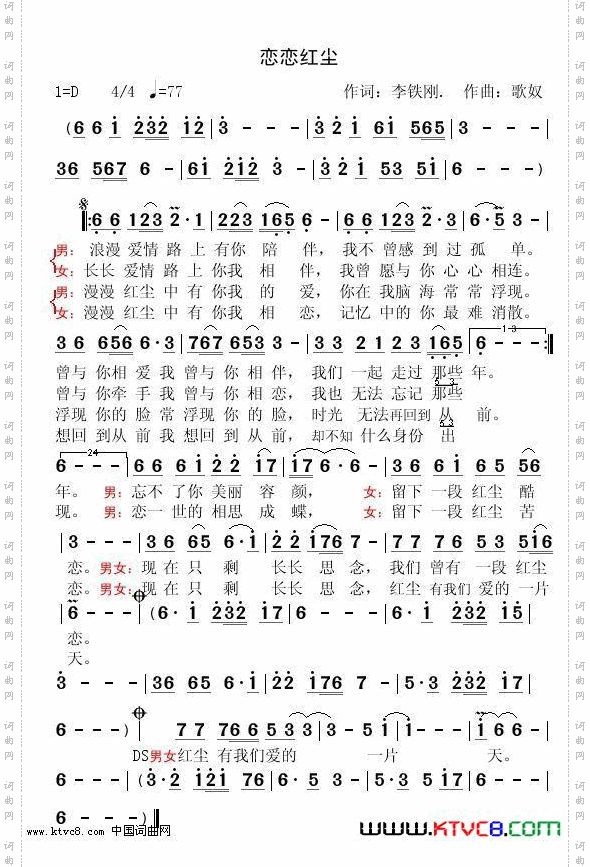 恋恋红尘
1=D 4/4 ♩=77 作词：李铁刚. 作曲：歌奴
(6 6 i 232 12 | 3 - - - | 32 1 61 565 |
36 567 6 - | 61 212 3 - | 32 1 53 51 | 6 - - - )
‖: 6 6 123 2· 1 | 223 165 6 - | 6 6 123 2· 3 | 6 · 5 3 - |
男：浪漫 爱情 路 上 有你 陪 伴，我不 曾感 到 过 孤 单。
女：长长 爱情 路 上 你我 相 伴，我曾 愿与 你 心 心 相连。
男：漫漫 红尘 中 有 你我 的 爱，你在 我脑 海 常 常 浮现。
女：漫漫 红尘 中 有 你我 相 恋，记忆 中的 你 最 难 消散。
36 6 656 6· 3 | 767 653 3 - | 32 12 3 23 165 | 6 - - :‖
1-3
曾与 你相 爱 我 曾与 你 相 伴，我们 一起 走过 那些 年。
曾与 你牵 手 我 曾与 你 相 恋，我也 无法 忘记 那些
浮现 你的 脸 常 浮现 你 的 脸，时光 无法再回到 从 前。
想回 到从 前 我 想回 到 从 前，却不知 什么身份 出
24
6 - - - | 66 61 2 2 17 | 176 6 · 6 · | 36 61 65 56 |
年。男：忘不 了你 美丽 容 颜，女：留下 一段 红尘 酷
现。男：恋一 世的 相思 成 蝶，女：留下 一段 红尘 苦
3 - - - | 36 65 6 · i | 2 2 176 3 - | 77 76 53 516 |
恋。男女：现在 只 剩 长长 思 念，我们 曾有 一段 红尘
恋。男女：现在 只 剩 长长 思 念，红尘 有我们 爱的 一片
6 - - - | (6· i 232 17 | 6 - - - | 6· i 232 15 |
恋。
天。
3 - - - | 36 65 6· i | 2 2 176 3 - | 5· 3 232 17 |
6 - - - ) | 77 766 53 3 | 3 - 5 1 | 1 - - - | i 66 - |
DS男女红尘 有我们爱的 一片 天。
6 - - - | (3· 2 121 76 | 6 - - - | 5· 3 232 17 |
6 - - - )‖
www.ktvc8.com 中国词曲网
WWW.KTVC8.COM
词曲网